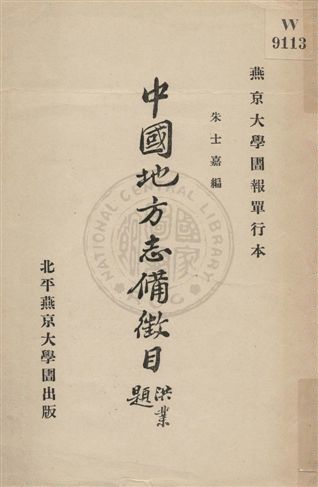 W
9113
燕京大學圕報單行本
朱士嘉編
中國地方志備徵目
洪業
題
北平燕京大學圕出版
NATIONAL CENTRAL LIBRARY